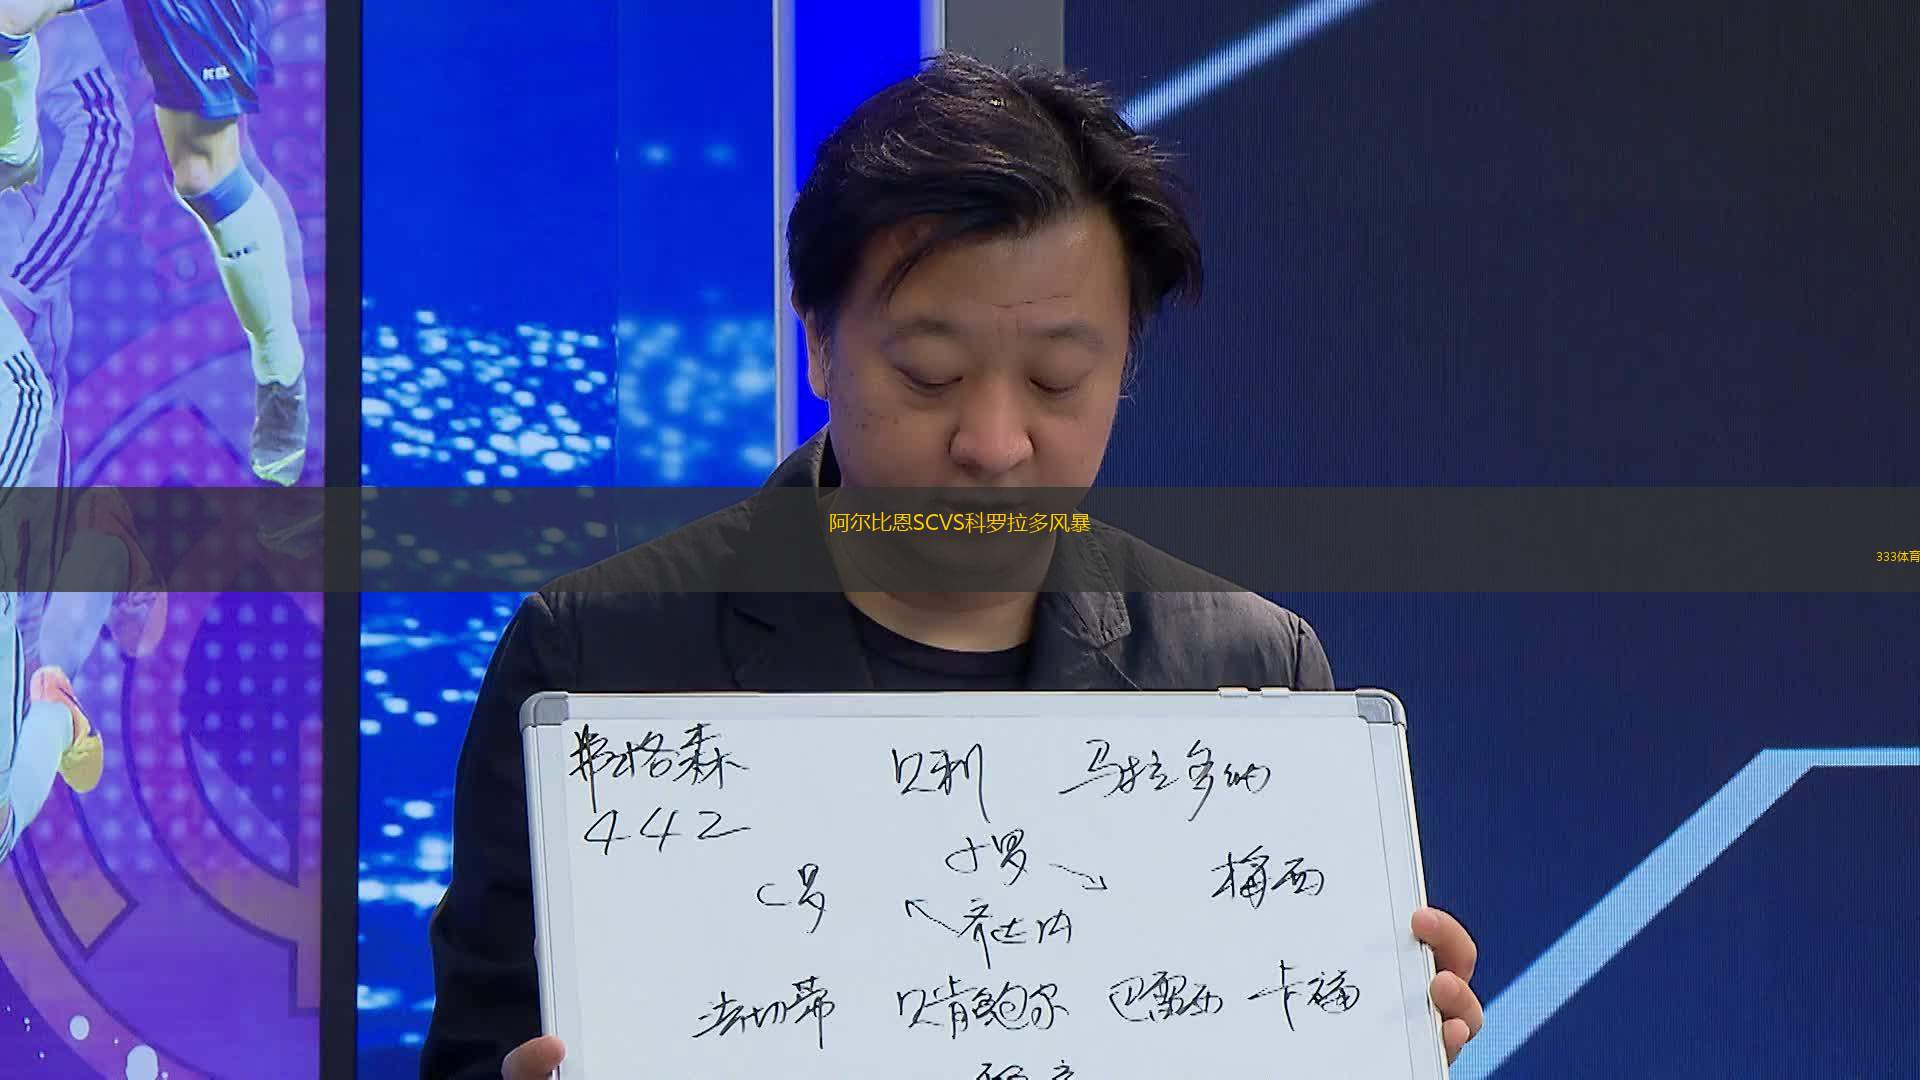 阿尔比恩SCVS科罗拉多风暴
333体育
弗格森 贝利 马拉多纳
442
小罗
C罗 梅西
齐达内
法切蒂 贝肯鲍尔 巴雷西 卡福